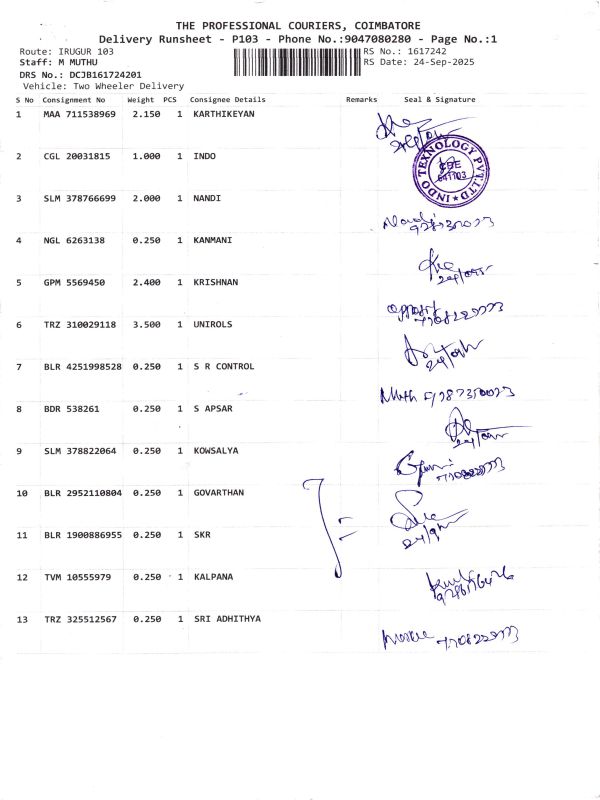 THE PROFESSIONAL COURIERS, COIMBATORE
Delivery Runsheet - P103 - Phone No.:9047080280 - Page No.:1
Route: IRUGUR 103
RS No.: 1617242
Staff: M MUTHU
RS Date: 24-Sep-2025
DRS No.: DCJB161724201
Vehicle: Two Wheeler Delivery
S No Consignment No Weight PCS Consignee Details Remarks Seal & Signature
1 MAA 711538969 2.150 1 KARTHIKEYAN
2 CGL 20031815 1.000 1 INDO
INDO TEXNOLOGY PVT.LTD
CBE
641103
3 SLM 378766699 2.000 1 NANDI
4 NGL 6263138 0.250 1 KANMANI
5 GPM 5569450 2.400 1 KRISHNAN
6 TRZ 310029118 3.500 1 UNIROLS
7 BLR 4251998528 0.250 1 S R CONTROL
8 BDR 538261 0.250 1 S APSAR
9 SLM 378822064 0.250 1 KOWSALYA
10 BLR 2952110804 0.250 1 GOVARTHAN
11 BLR 1900886955 0.250 1 SKR
12 TVM 10555979 0.250 1 KALPANA
13 TRZ 325512567 0.250 1 SRI ADHITHYA